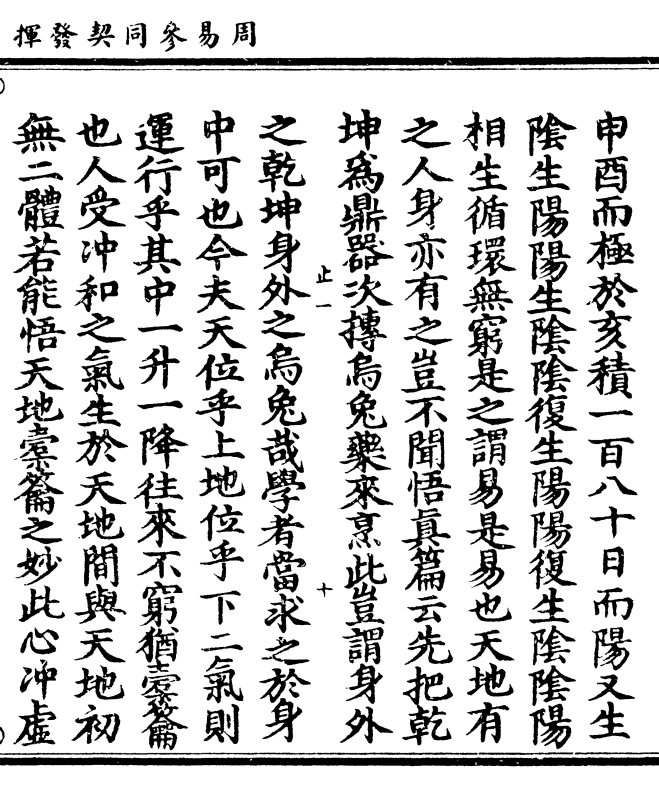 周易參同契發揮
申酉而極於亥積一百八十日而陽又生
陰生陽陽生陰陰復生陽陽復生陰陰陽
相生循環無窮是之謂易是易也天地有
之人身亦有之豈不聞悟真篇云先把乾
坤爲鼎器次摶烏兔藥來烹此豈謂身外
止一
十
之乾坤身外之烏兔哉學者當求之於身
中可也今夫天位乎上地位乎下二氣則
運行乎其中一升一降往來不窮猶橐籥
也人受冲和之氣生於天地間與天地初
無二體若能悟天地橐籥之妙此心冲虛